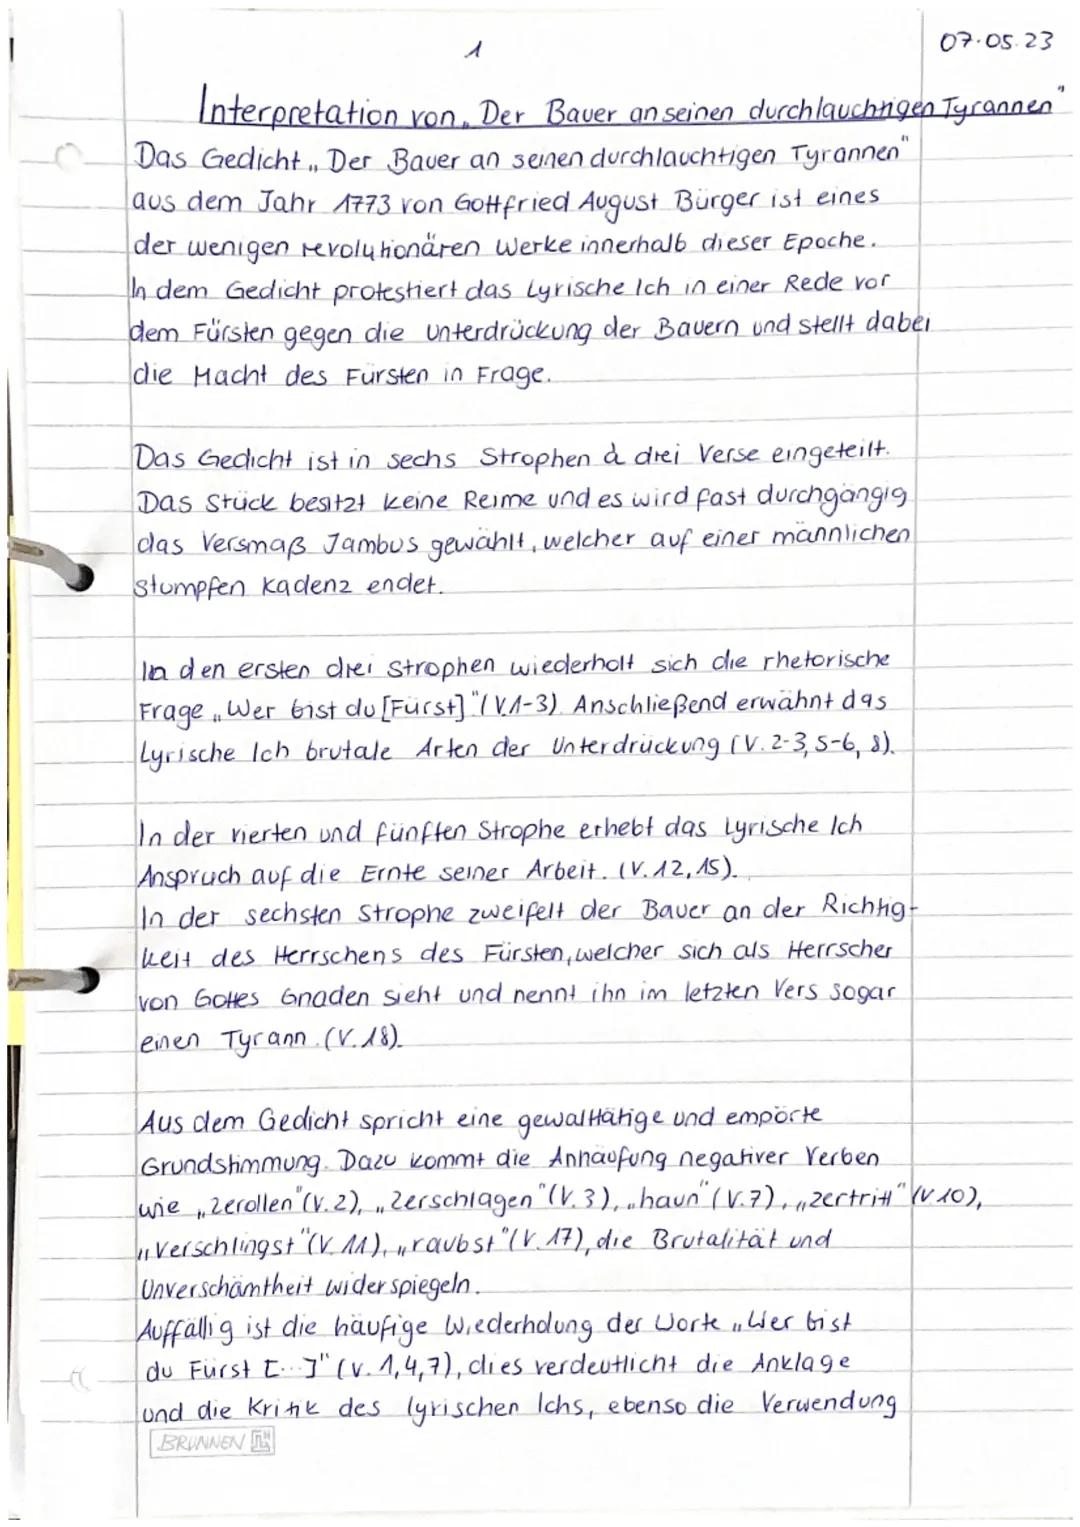 1
07.05.23
Interpretation von „Der Bauer an seinen durchlauchtigen Tyrannen"
Das Gedicht „Der Bauer an seinen durchlauchtigen Tyrannen"
aus dem Jahr 1773 von Gottfried August Bürger ist eines
der wenigen revolutionären Werke innerhalb dieser Epoche.
In dem Gedicht protestiert das Lyrische Ich in einer Rede vor
dem Fürsten gegen die Unterdrückung der Bauern und stellt dabei
die Macht des Fürsten in Frage.
Das Gedicht ist in sechs Strophen à drei Verse eingeteilt.
Das Stück besitzt keine Reime und es wird fast durchgängig
das Versmaß Jambus gewählt, welcher auf einer männlichen
stumpfen Kadenz endet.
In den ersten drei Strophen wiederholt sich die rhetorische
Frage „Wer bist du [Fürst]" (V.1-3). Anschließend erwähnt das
Lyrische Ich brutale Arten der Unterdrückung (V. 2-3, 5-6, 8).
In der vierten und fünften Strophe erhebt das Lyrische Ich
Anspruch auf die Ernte seiner Arbeit. (V. 12, 15).
In der sechsten Strophe zweifelt der Bauer an der Richtig-
keit des Herrschens des Fürsten, welcher sich als Herrscher
von Gottes Gnaden sieht und nennt ihn im letzten Vers sogar
einen Tyrann. (V. 18).
Aus dem Gedicht spricht eine gewalttätige und empörte
Grundstimmung. Dazu kommt die Anhäufung negativer Verben
wie „zerollen" (V. 2), „zerschlagen" (V. 3), „haun" (V. 7), „zertritt" (V. 10),
„Verschlingst" (V. 11), „raubst" (V. 17), die Brutalität und
Unverschämtheit widerspiegeln.
Auffällig ist die häufige Wiederholung der Worte „Wer bist
du Fürst [...]" (V. 1, 4, 7), dies verdeutlicht die Anklage
und die Kritik des lyrischen Ichs, ebenso die Verwendung
BRUNNEN